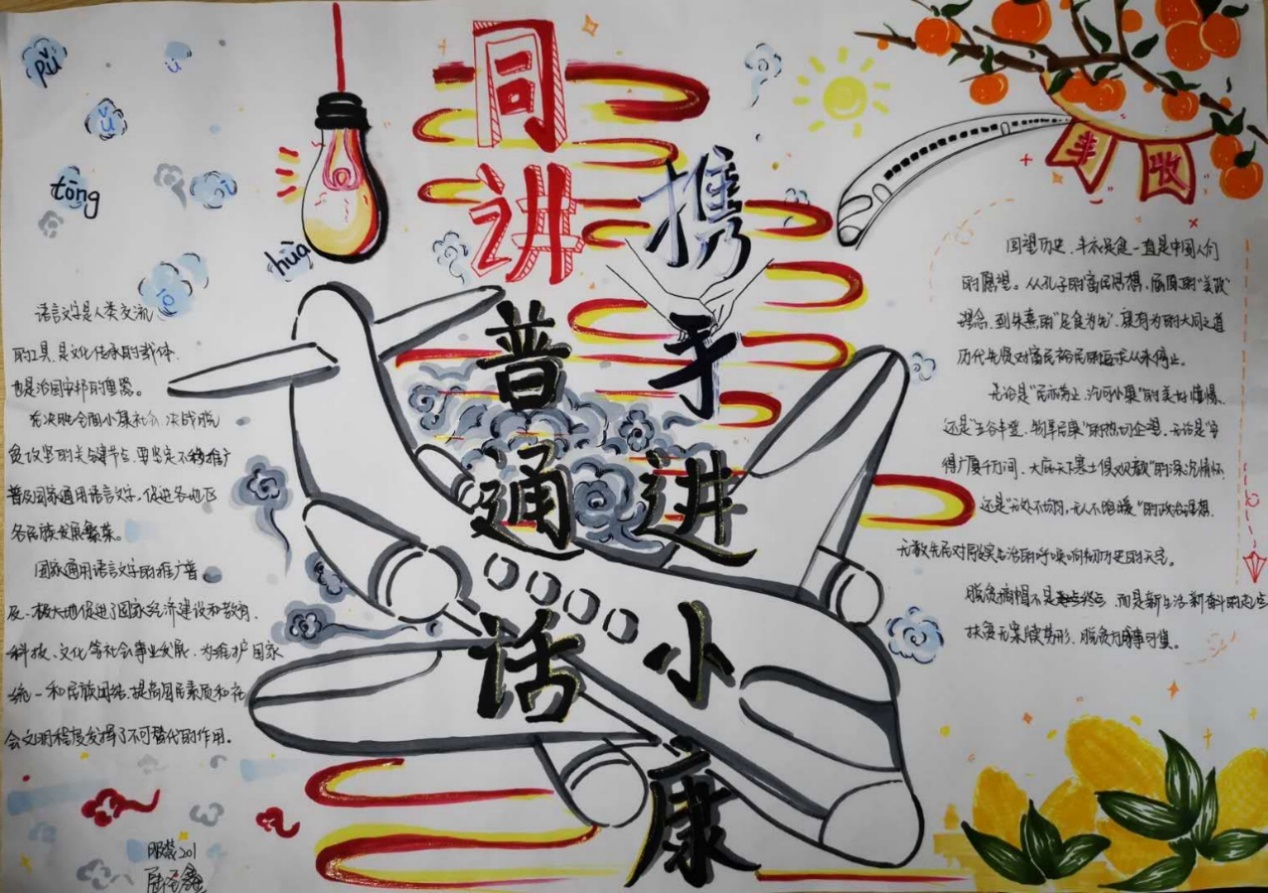 pǔ
ü
ū
tōng
huà
ō
同讲
普通话
携手
进小康
丰收
语言文字是人类交流
的工具,是文化传承的载体,
也是治国安邦的重器。
在决胜全面小康社会、决战脱
贫攻坚的关键节点,要坚定不移推广
普及国家通用语言文字,促进各地区
各民族发展繁荣。
国家通用语言文字的推广普
及,极大地促进了国家经济建设和教育、
科技、文化等社会事业发展,为维护国家
统一和民族团结、提高国民素质和社
会文明程度发挥了不可替代的作用。
服装201
回望历史,丰衣足食一直是中国人们
的愿望。从孔子的富民思想,屈原的“美政”
理念,到朱熹的“足食为先”,康有为的大同之道
历代先贤对富民裕民的追求从未停止。
无论是“民亦劳止,汔可小康”的美好憧憬,
还是“五谷丰登,物阜民康”的热切企望,无论是“安
得广厦千万间,大庇天下寒士俱欢颜”的深沉情怀
还是“无处不均匀,无人不饱暖”的政治理想,
无数先民对同治的呼唤响彻历史的天空。
脱贫摘帽不是终点,而是新生活新奋斗的起点
扶贫无形,脱贫可